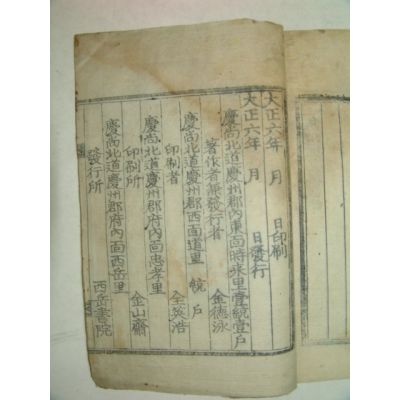 大正六年 月 日印刷
大正六年 月 日發行
慶尚北道慶州郡內東面時來里壹統壹戶
著作者兼發行者 金德泳
慶尚北道慶州郡西面道里 統 戶
印刷者 全英浩
慶尚北道慶州郡府內面忠孝里
印刷所 金山齋
慶尚北道慶州郡府內面西岳里
發行所 西岳書院